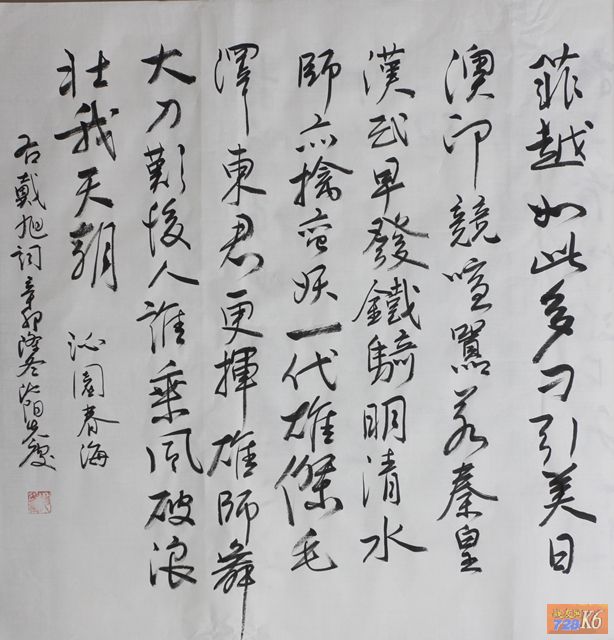 菲越如此多刁引美日
澳印競喧囂若秦皇
漢武早發鐵騎明清水
師亦擒奇妖一代雄傑毛
澤東君更揮雄師舞
大刀歎後人誰乘風破浪
壯我天朝
沁園春海
右戴旭詞辛卯隆冬沈陽
728K6